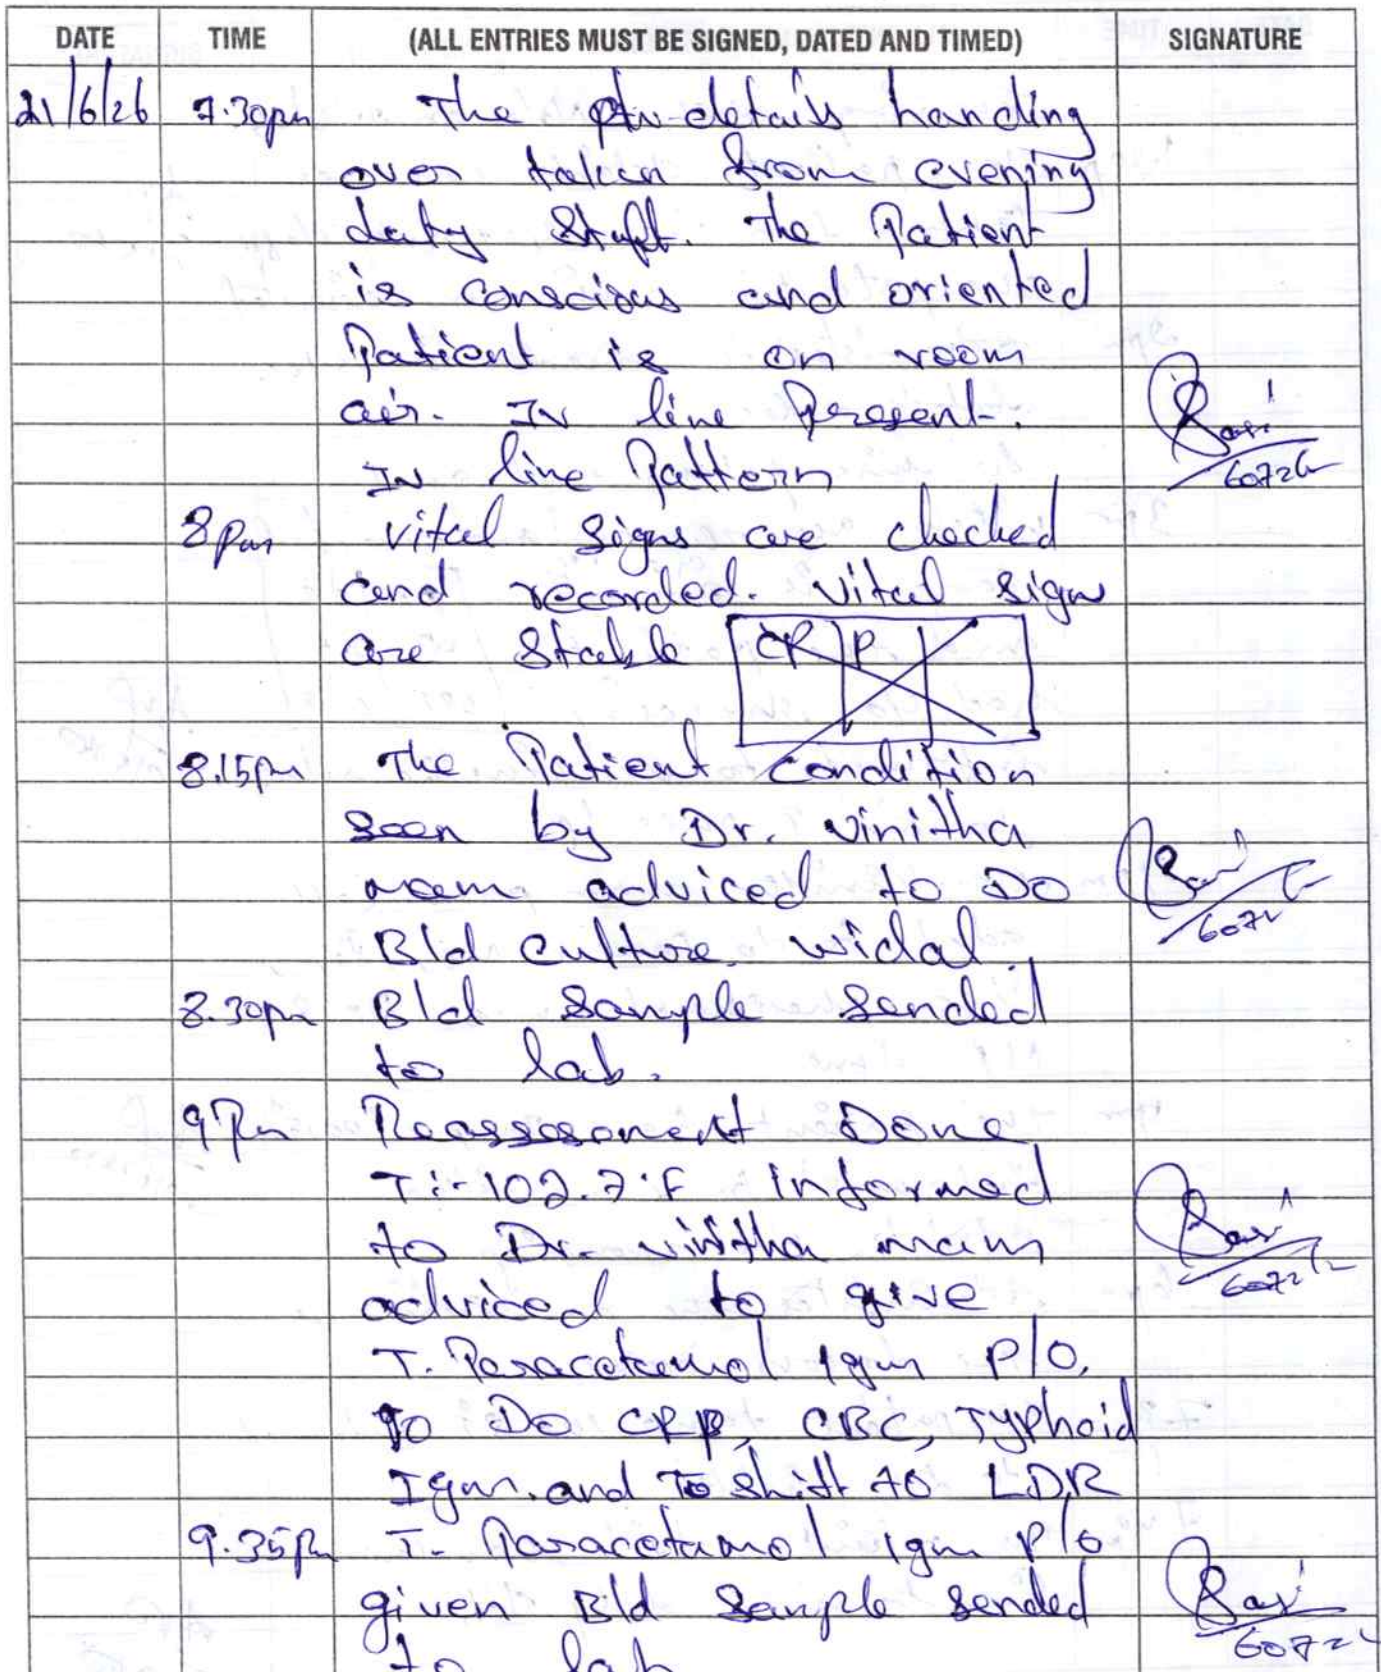 DATE TIME (ALL ENTRIES MUST BE SIGNED, DATED AND TIMED) SIGNATURE
21/6/26 7.30pm The details handing
over taken from evening
duty Staff. The Patient
is conscious and oriented
Patient is on room
air. IV line Present.
IV line Pattern
8pm vital signs are checked
and recorded. vital signs
are Stable CR P
8.15pm The Patient condition
seen by Dr. vinitha
mam adviced to Do
Bld culture, widal.
8.30pm Bld Sample Sended
to lab.
9Pm Reassesment Done
T:- 102.7°F informed
to Dr. vinitha mam
adviced to give
T. Paracetamol 1gm P/O,
To Do CRP, CBC, Typhoid
Igm. and To shift to LDR
9.35Pm T. Paracetamol 1gm P/o
given Bld Sample Sended
to lab